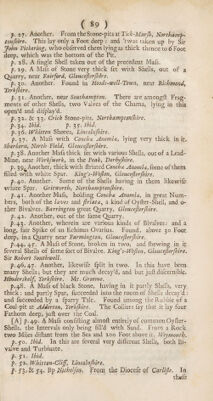 ( 89 )
p. 27. Another. From the Stone-pits at Tick-Marsh, Northamp-
tonshire. This lay only 2 Foot deep: and 'twas taken up by Sir
John Pickering, who observed them lying as thick thence to 6 Foot
deep, which was the bottom of the Pit.
p. 28. A single Shell taken out of the precedent Mass.
p. 29. A Mass of Stone very thick set with Shells, out of a
Quarry, near Fairford, Gloucestershire.
p. 30. Another. Found in Maids-well-Town, near Richmond,
Yorkshire.
p. 31. Another, near Southampton. There are amongst Frag-
ments of other Shells, two Valves of the Chama, lying in this
open'd and display'd.
p. 32. & 33. Crick Stone-pits, Northamptonshire.
p. 34. Ibid. p. 35. Ibid.
p. 36. Whitten Shoers, Lincolnshire.
p. 37. A Mass with Concha Anomia, lying very thick in it.
Sherborn, North Field, Gloucestershire.
p. 38. Another Mass thick set with various Shells, out of a Lead-
Mine, near Wirksworth, in the Peak, Derbyshire.
p. 39. Another, thick with striated Concha Anomia, some of them
filled with white Spar. King's-Weston, Gloucestershire.
p. 40. Another. Some of the Shells having in them likewise
white Spar. Grittworth, Northamptonshire.
p. 41. Another Mass, holding Concha Anomia, in great Num-
bers, both of the lævis and striata, a kind of Oyster-Shell, and o-
ther Bivalves. Barrington great Quarry, Gloucestershire.
p. 42. Another, out of the same Quarry.
p. 43. Another, wherein are various kinds of Bivalves: and a
long, fair Spike of an Echinus Ovarius. Found above 50 Foot
deep, in a Quarry near Farmington, Gloucestershire.
p. 44, 45. A Mass of Stone, broken in two, and shewing in it
several Shells of some sort of Bivalve. King's-Weston, Gloucestershire.
Sir Robert Southwell.
p. 46, 47. Another, likewise split in two. In this have been
many Shells; but they are much decay'd, and but just discernible.
Hinderskelf, Yorkshire. Mr Greame.
p. 48. A Mass of black Stone, having in it partly Shells, very
thick: and partly Spar, succeeded into the room of Shells decay'd:
and succeeded by a sparry Tale. Found among the Rubbish of a
Coal-pit at Adderton, Yorkshire. The Colliers say that it lay four
Fathom deep, just over the Coal.
[A] p. 49. A Mass consisting almost entirely of common Oyster-
Shells, the Intervals only being fill'd with Sand. From a Rock
two Miles distant from the Sea and 100 Foot above it. Weymouth.
p. 50. Ibid. In this are several very different Shells, both Bi-
valve and Turbinate.
p. 51. Ibid.
p. 52. Whitton-Cliff, Lincolnshire.
p. 53. & 54. Bp Nicholson. From the Diocese of Carlisle. In
these